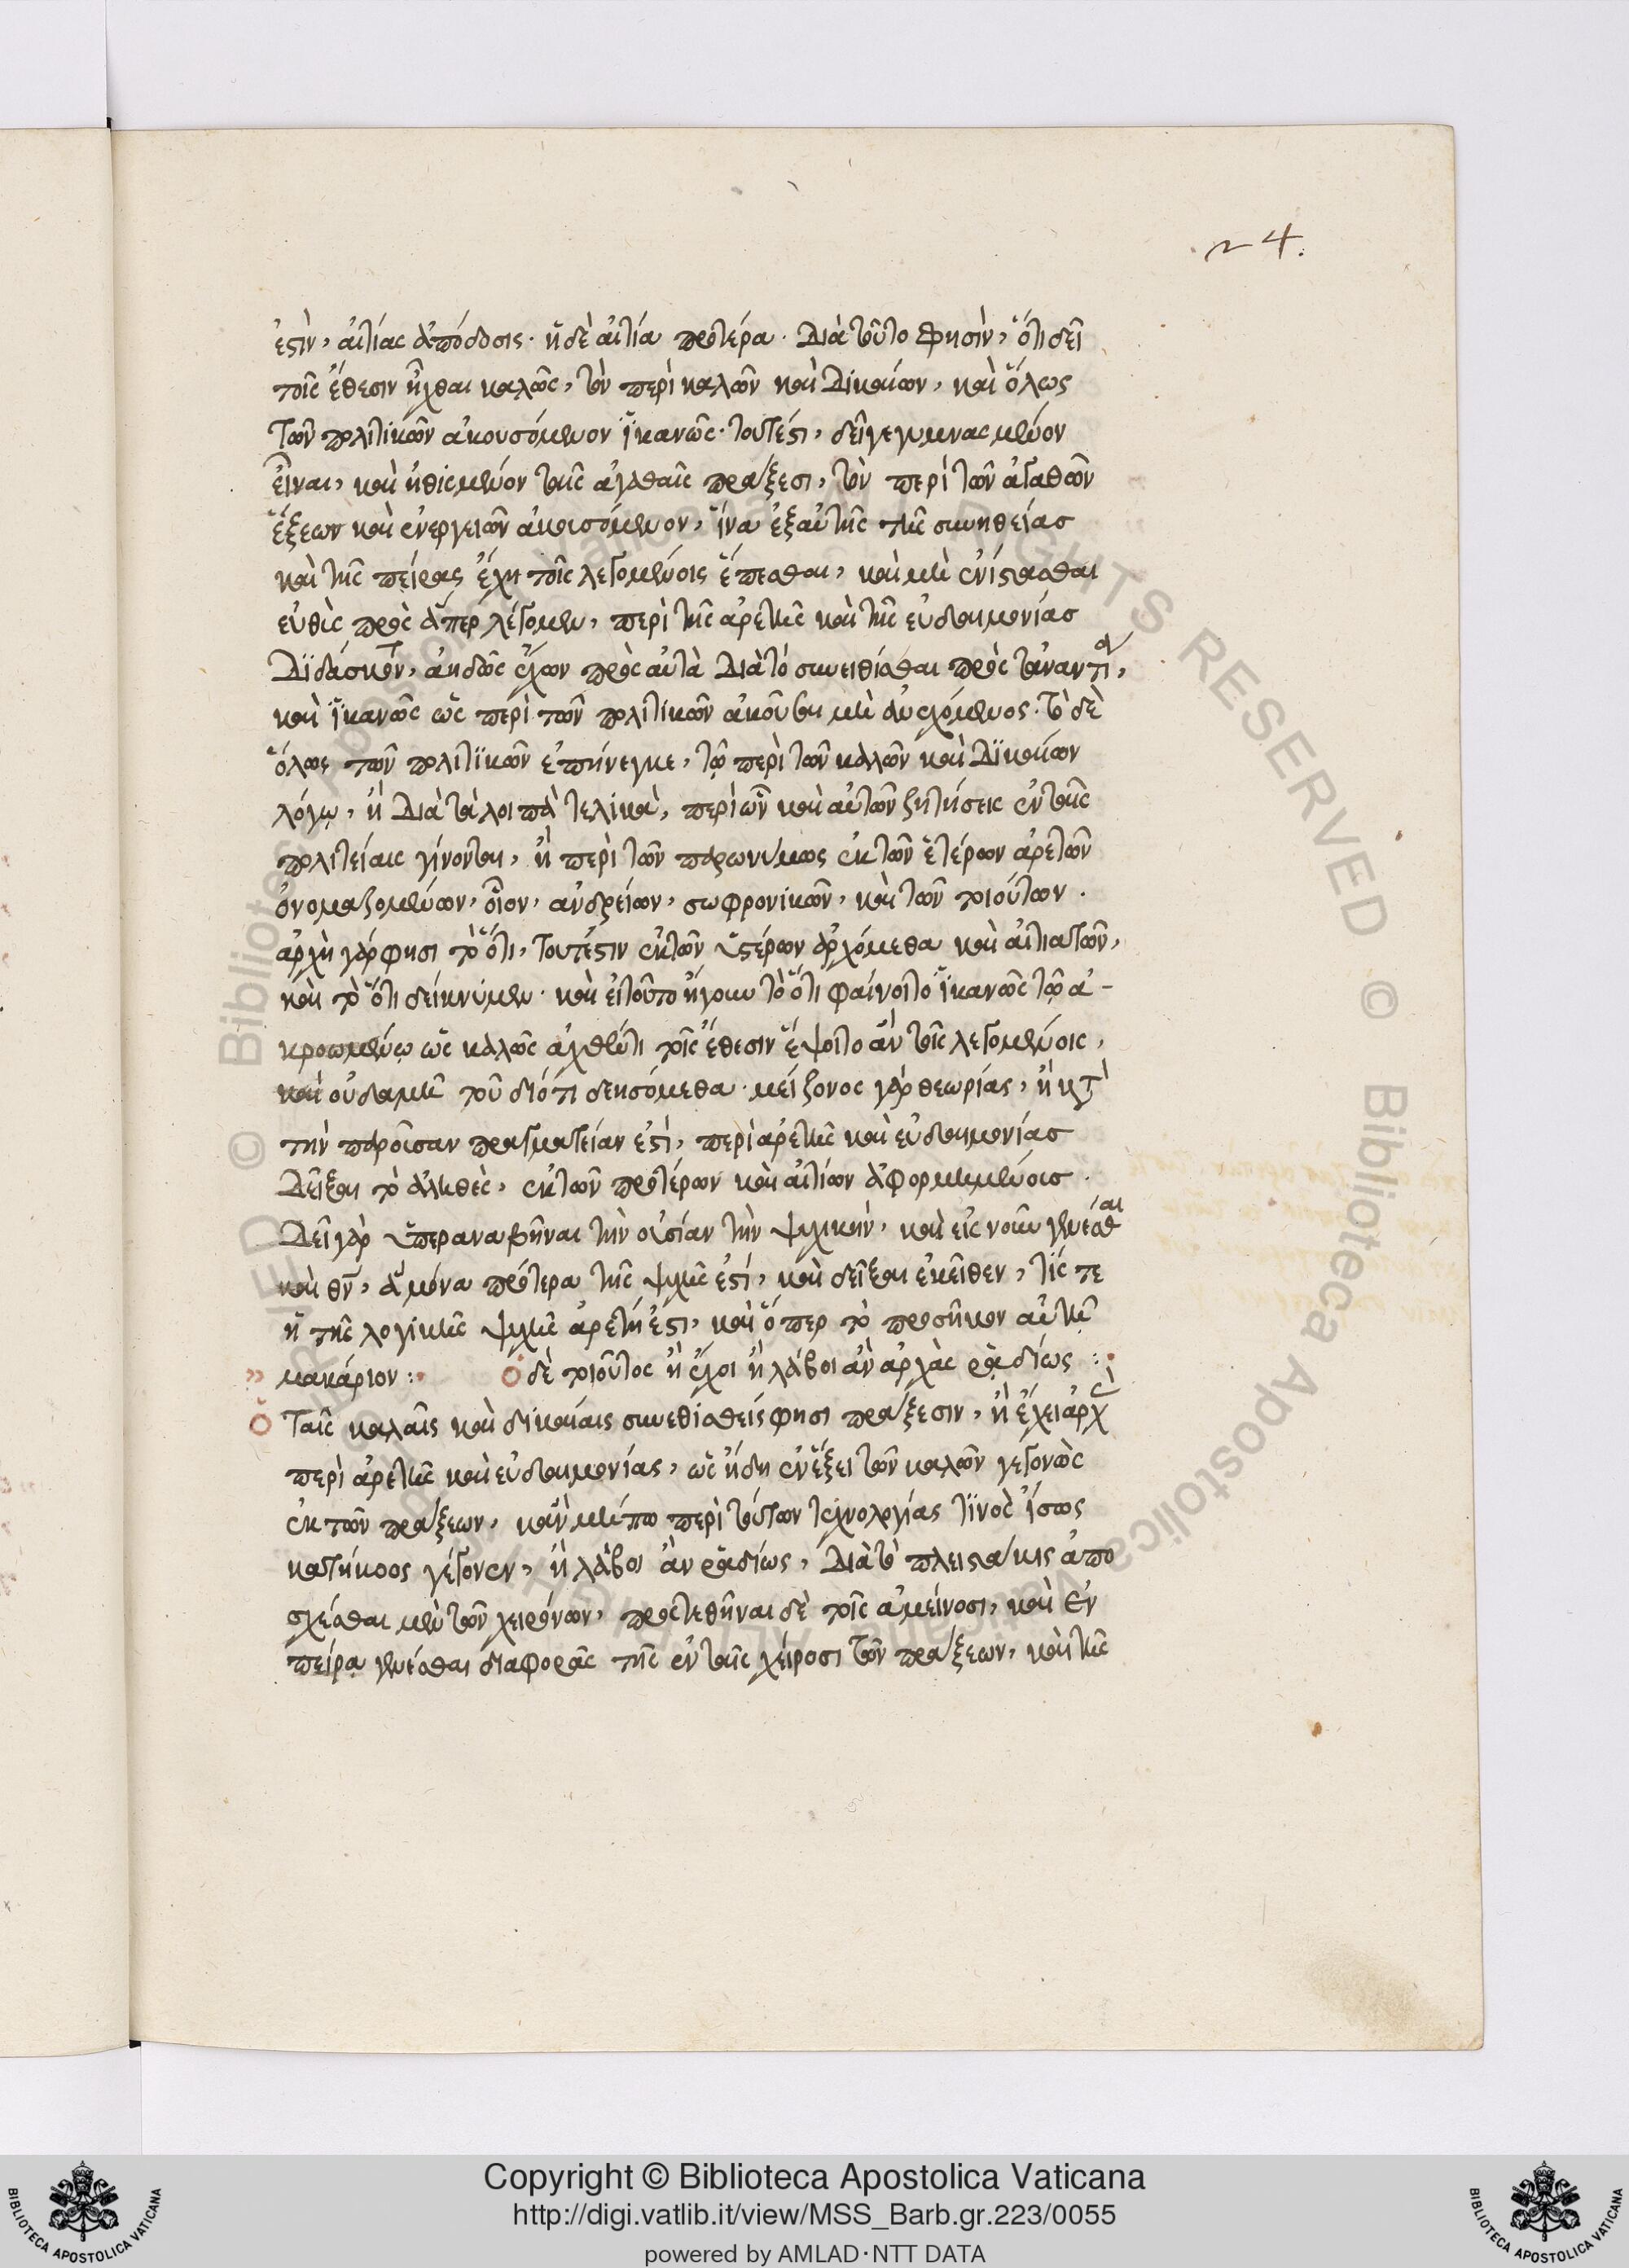 24.
ἐστὶν, αἰτίας ἀπόδοσις· ἡ δὲ αἰτία προτέρα. Διὰ τοῦτο φησὶν, ὅτι δεῖ
τοῖς ἔθεσιν ἦχθαι καλῶς, τὸν περὶ καλῶν καὶ Δικαίων, καὶ ὅλως
τῶν πολιτικῶν ἀκουσόμενον ἱκανῶς· τουτέστι, δεῖ γεγυμνασμένον
εἶναι, καὶ ἠθισμένον ταῖς ἀγαθαῖς πράξεσι, τὸν περὶ τῶν ἀγαθῶν
ἕξεων καὶ ἐνεργειῶν ἀκουσόμενον, ἵνα ἐξ αὐτῆς τῆς συνηθείας
καὶ τῆς πείρας ἔχη τοῖς λεγομένοις ἕπεσθαι, καὶ μὴ ἐνίστασθαι
εὐθὺς πρὸς ἅπερ λέγομεν, περὶ τῆς ἀρετῆς καὶ τῆς εὐδαιμονίας
Διδάσκοντες, ἀηδῶς ἔχων πρὸς αὐτὰ Διὰ τὸ συνειθίσθαι πρὸς τἀναντία,
καὶ ἱκανῶς ὡς περὶ τῶν πολιτικῶν ἀκοῦσαι μὴ ἀνεχόμενος. τὸ δὲ
ὅλως τῶν πολιτικῶν ἐπήνεγκε, τῷ περὶ τῶν καλῶν καὶ Δικαίων
λόγῳ, ἢ Διὰ τὰ λοιπὰ τελικὰ, περὶ ὧν καὶ αὐτῶν ζητήσεις ἐν ταῖς
πολιτείαις γίνονται, ἢ περὶ τῶν παρωνύμως ἐκ τῶν ἑτέρων ἀρετῶν
ὀνομαζομένων, οἷον, ἀνδρείων, σωφρονικῶν, καὶ τῶν τοιούτων.
ἀρχὴ γάρ φησι τὸ ὅτι, τουτέστιν ἐκ τῶν ὑστέρων ἀρχόμεθα καὶ αἰτιατῶν,
καὶ τὸ ὅτι δείκνυμεν· καὶ εἰ τοῦτο ἤγουν τὸ ὅτι φαίνοιτο ἱκανῶς τῷ ἀ-
κροωμένῳ ὡς καλῶς ἀχθέντι τοῖς ἔθεσιν ἕψοιτο ἂν τοῖς λεγομένοις,
καὶ οὐδαμῆ τοῦ διότι δεησόμεθα· μείζονος γὰρ θεωρίας, ἢ κατὰ
τὴν παροῦσαν πραγματείαν ἐστὶ, περὶ ἀρετῆς καὶ εὐδαιμονίας
Δεῖξαι τὸ ἀληθὲς, ἐκ τῶν προτέρων καὶ αἰτίων ἀφορμωμένοις.
Δεῖ γὰρ ὑπεραναβῆναι τὴν οὐσίαν τὴν ψυχικὴν, καὶ εἰς νοῦν γενέσθαι
καὶ θν, ἃ μόνα πρότερα τῆς ψυχῆς ἐστί, καὶ δεῖξαι ἐκεῖθεν, τίς τε
ἡ τῆς λογικῆς ψυχῆς ἀρετή ἐστι, καὶ ὅπερ τὸ προσῆκον αὐτῇ
μακάριον: Ὁ δὲ τοιοῦτος ἢ ἔχοι ἢ λάβοι ἂν ἀρχὰς ῥᾳδίως:
Ὁ ταῖς καλαῖς καὶ δικαίαις συνεθισθείς φησι πράξεσιν, ἢ ἔχει ἀρχὴν
περὶ ἀρετῆς καὶ εὐδαιμονίας, ὡς ἤδη ἐν ἕξει τῶν καλῶν γεγονὼς
ἐκ τῶν πράξεων, κἂν μήπω περὶ τούτων τεχνολογίας τινὸς ἴσως
κατήκοος γέγονεν, ἢ λάβοι ἂν ῥᾳδίως, Διὰ τὸ πλειστάκις ἀπο
σχέσθαι μὲν τῶν χειρόνων, προστεθῆναι δὲ τοῖς ἀμείνοσι, καὶ ἐν
πείρᾳ γενέσθαι διαφορᾶς τῆς ἐν ταῖς χείροσι τῶν πράξεων, καὶ τῆς
Copyright © Biblioteca Apostolica Vaticana
http://digi.vatlib.it/view/MSS_Barb.gr.223/0055
powered by AMLAD·NTT DATA